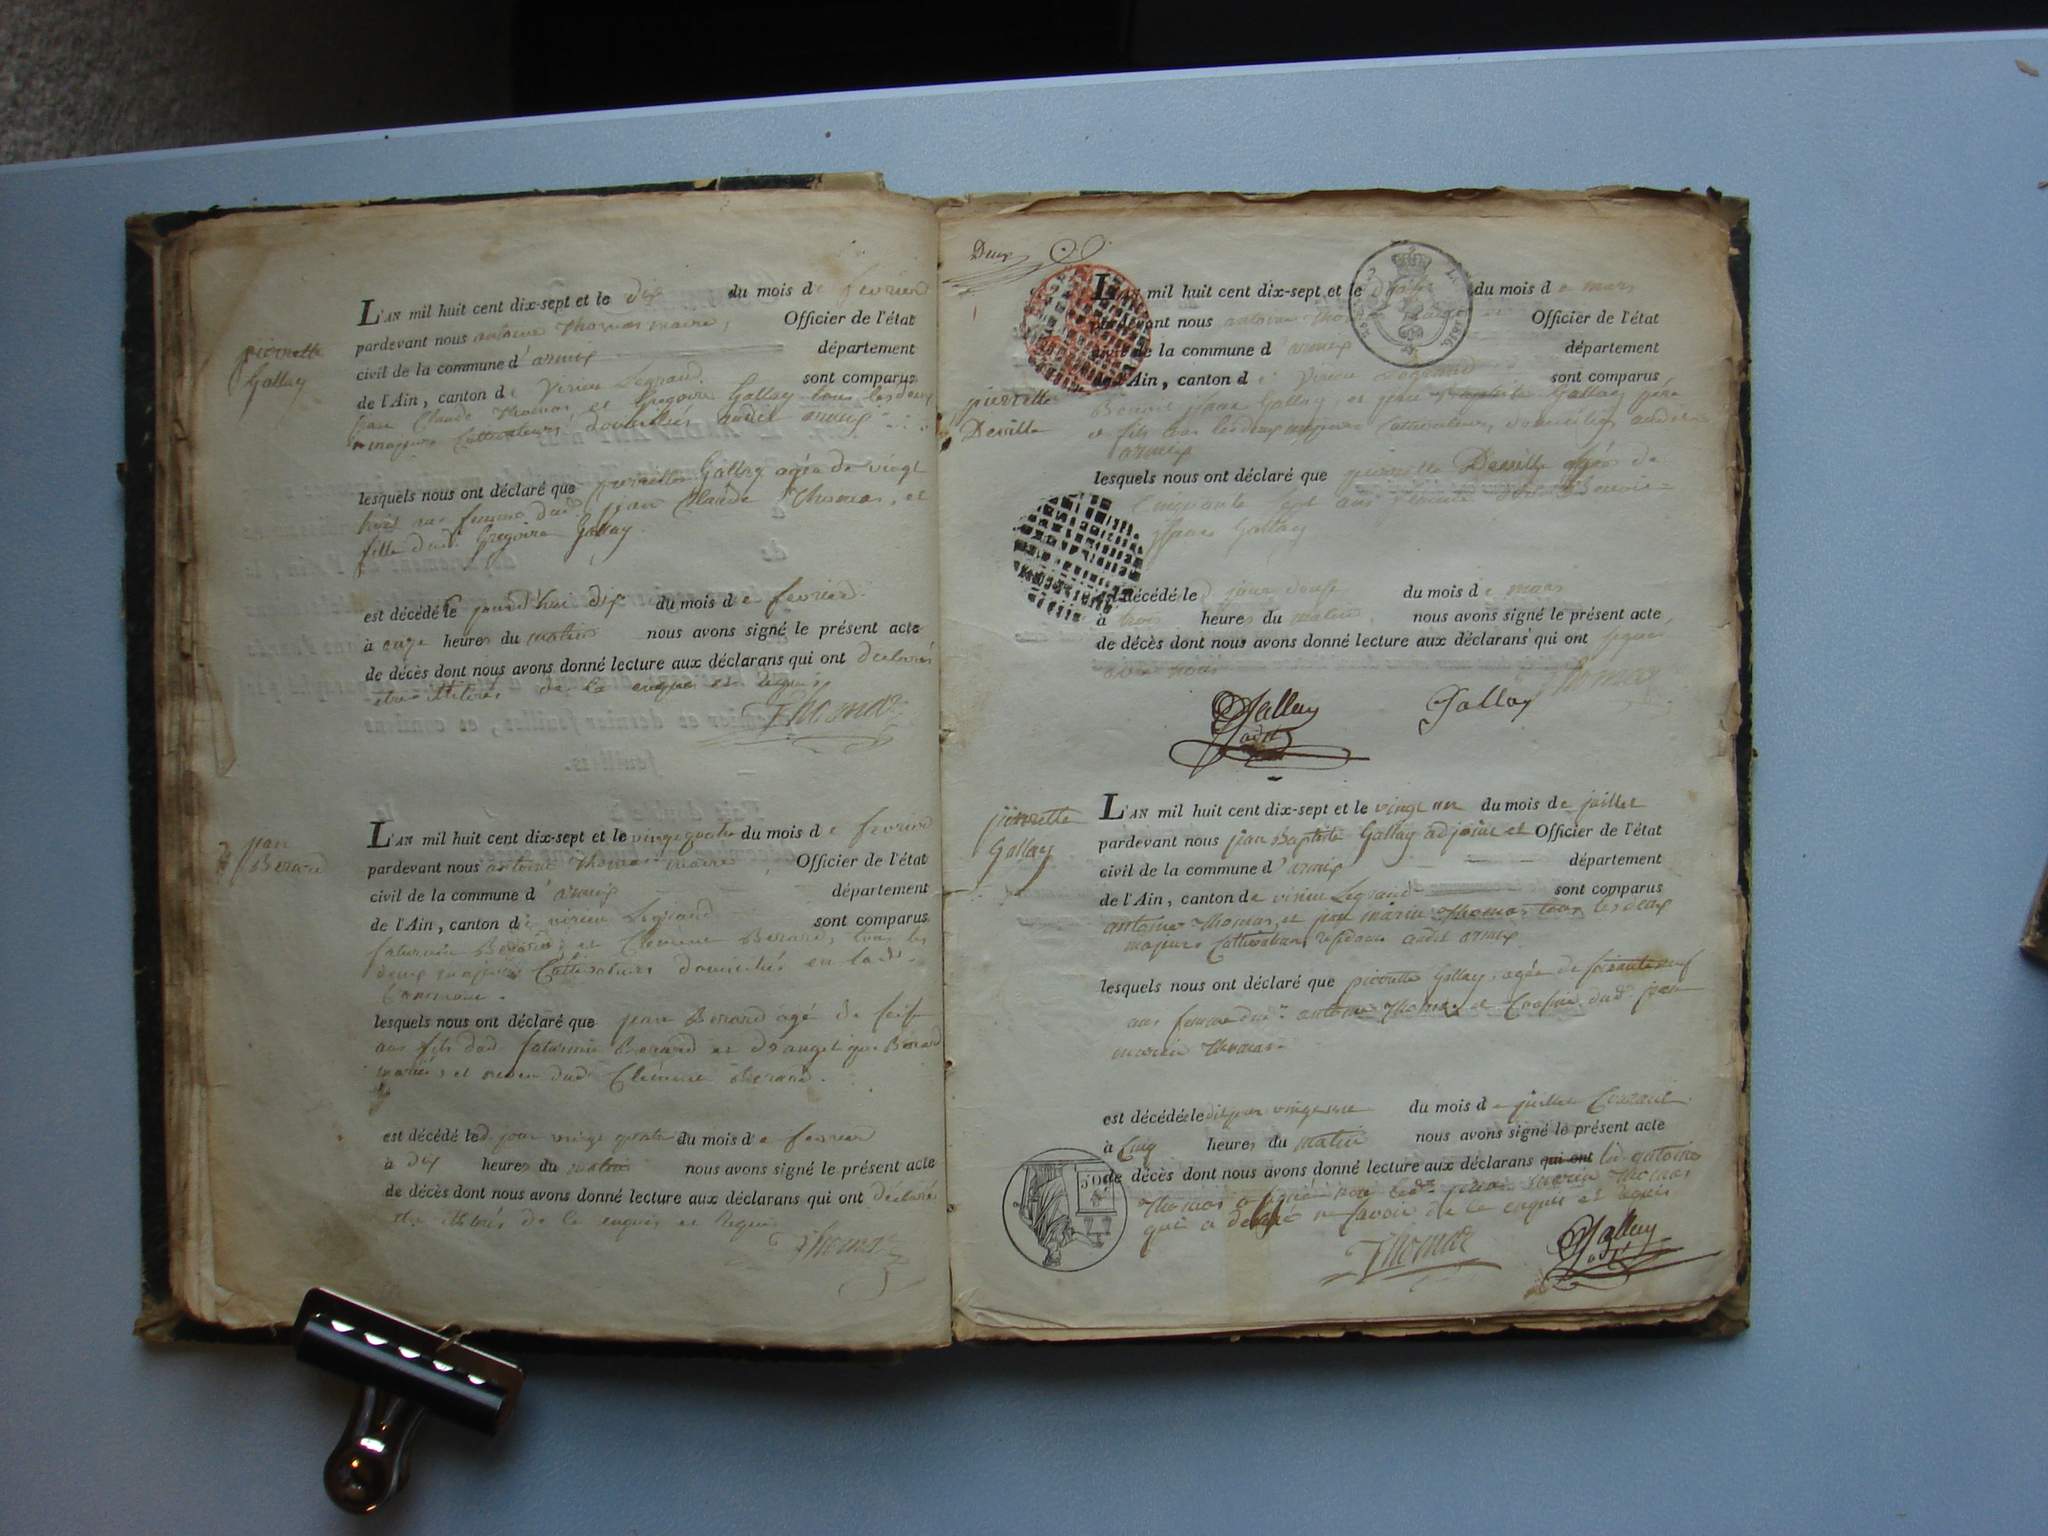 pierrette
Gallay
L'AN mil huit cent dix-sept et le dix du mois de fevrier
pardevant nous antoine Thomas maire, Officier de l'état
civil de la commune d'armix département
de l'Ain, canton de Virieu Legrand sont comparus
jean Claude Thomas, et Gregoire Gallay tous les deux
majeurs Cultivateurs domiciliés audit armix
lesquels nous ont déclaré que pierrette Gallay agée de vingt
huit ans femme dud. jean Claude Thomas, et
fille dud. Gregoire Gallay.
est décédé le jourd'hui dix du mois de fevrier
à onze heures du matin nous avons signé le présent acte
de décès dont nous avons donné lecture aux déclarans qui ont déclarés
être illitérés de ce enquis et requis
Thomas
jean
Berard
L'AN mil huit cent dix-sept et le vingt quatre du mois de fevrier
pardevant nous antoine Thomas maire Officier de l'état
civil de la commune d'armix département
de l'Ain, canton de virieu Legrand sont comparus
saturnin Berard, et Clément Berard, tous les
deux majeurs Cultivateurs domiciliés en lad.
Commune.
lesquels nous ont déclaré que jean Berard agé de
ans fils dud. saturnin Berard et d'angelique Berard
mariés, et neveu dud. Clément Berard.
est décédé led. jour vingt quatre du mois de fevrier
à dix heures du matin nous avons signé le présent acte
de décès dont nous avons donné lecture aux déclarans qui ont déclarés
être illitérés de ce enquis et requis
Thomas
Deux
pierrette
Deville
L'AN mil huit cent dix-sept et le du mois de mars
pardevant nous antoine Thomas maire Officier de l'état
civil de la commune d'armix département
de l'Ain, canton de Virieu Legrand sont comparus
Benoit Gallay, et jean Baptiste Gallay père
et fils tous les deux majeurs Cultivateurs, domiciliés aud.
armix
lesquels nous ont déclaré que pierrette Deville agée de
Cinquante sept ans femme dud. Benoit
Gallay
est décédé le d. jour douze du mois de mars
à trois heures du matin nous avons signé le présent acte
de décès dont nous avons donné lecture aux déclarans qui ont signé
avec nous
Thomas
Gallay
adjt
Gallay
pierrette
Gallay
L'AN mil huit cent dix-sept et le vingt un du mois de juillet
pardevant nous jean Baptiste Gallay adjoint et Officier de l'état
civil de la commune d'armix département
de l'Ain, canton de virieu Legrand sont comparus
antoine Thomas, et jean marin Thomas tous les deux
majeurs Cultivateurs résidants audit armix
lesquels nous ont déclaré que pierrette Gallay, agée de soixante neuf
ans femme dud. antoine Thomas et Cousine dud. jean
marin Thomas.
est décédé le dit jour vingt un du mois de juillet Courant
à Cinq heures du matin nous avons signé le présent acte
de décès dont nous avons donné lecture aux déclarans qui ont led. antoine
Thomas a signé non led. jean marin Thomas
qui a déclaré ne savoir de ce enquis et requis
Thomas
Gallay
adjt